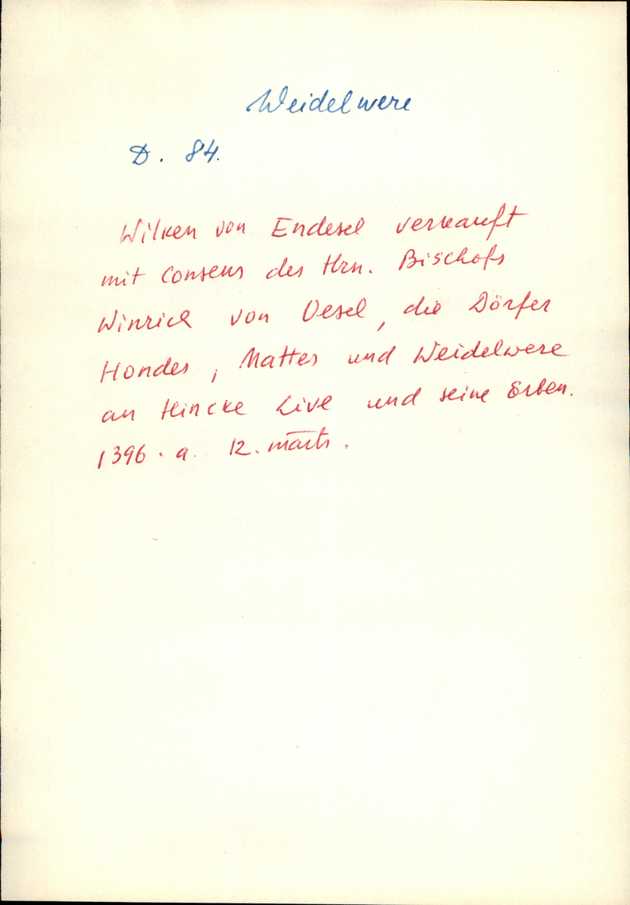 Weidelwere
D. 84.
Wilken von Endesel verkauft
mit Consens des Hrn. Bischofs
Winrick von Oesel, die Dörfer
Hondes, Mattes und Weidelwere
an Hincke Live und seine Erben.
1396. a. 12. märts.